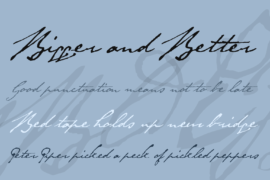 Bigger and Better
Good punctuation means not to be late
Red tape holds up new bridge
Peter Piper picked a peck of pickled peppers